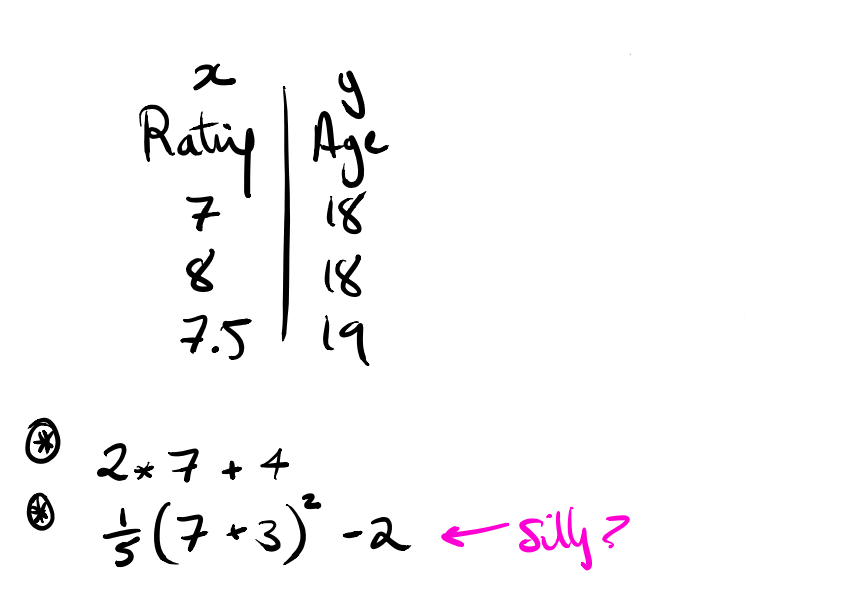 x y
Rating Age
7 18
8 18
7.5 19
⊛ 2 * 7 + 4
⊛ 1/5 (7 + 3)² - 2 ← silly?